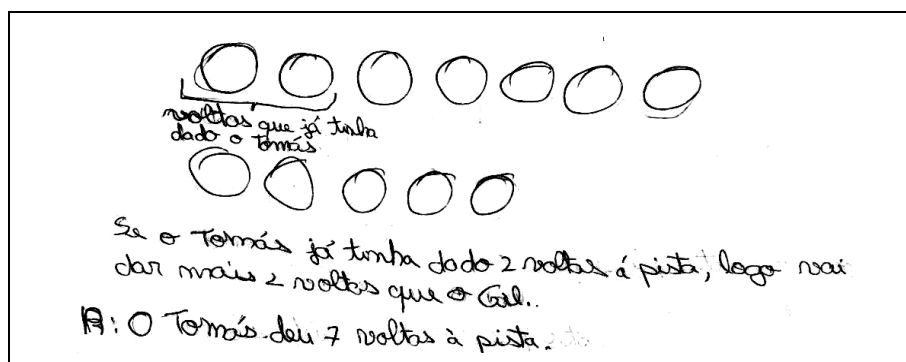 voltas que já tinha
dado o Tomás
Se o Tomás já tinha dado 2 voltas á pista, logo vai
dar mais 2 voltas que o Gil.
R: O Tomás deu 7 voltas à pista.